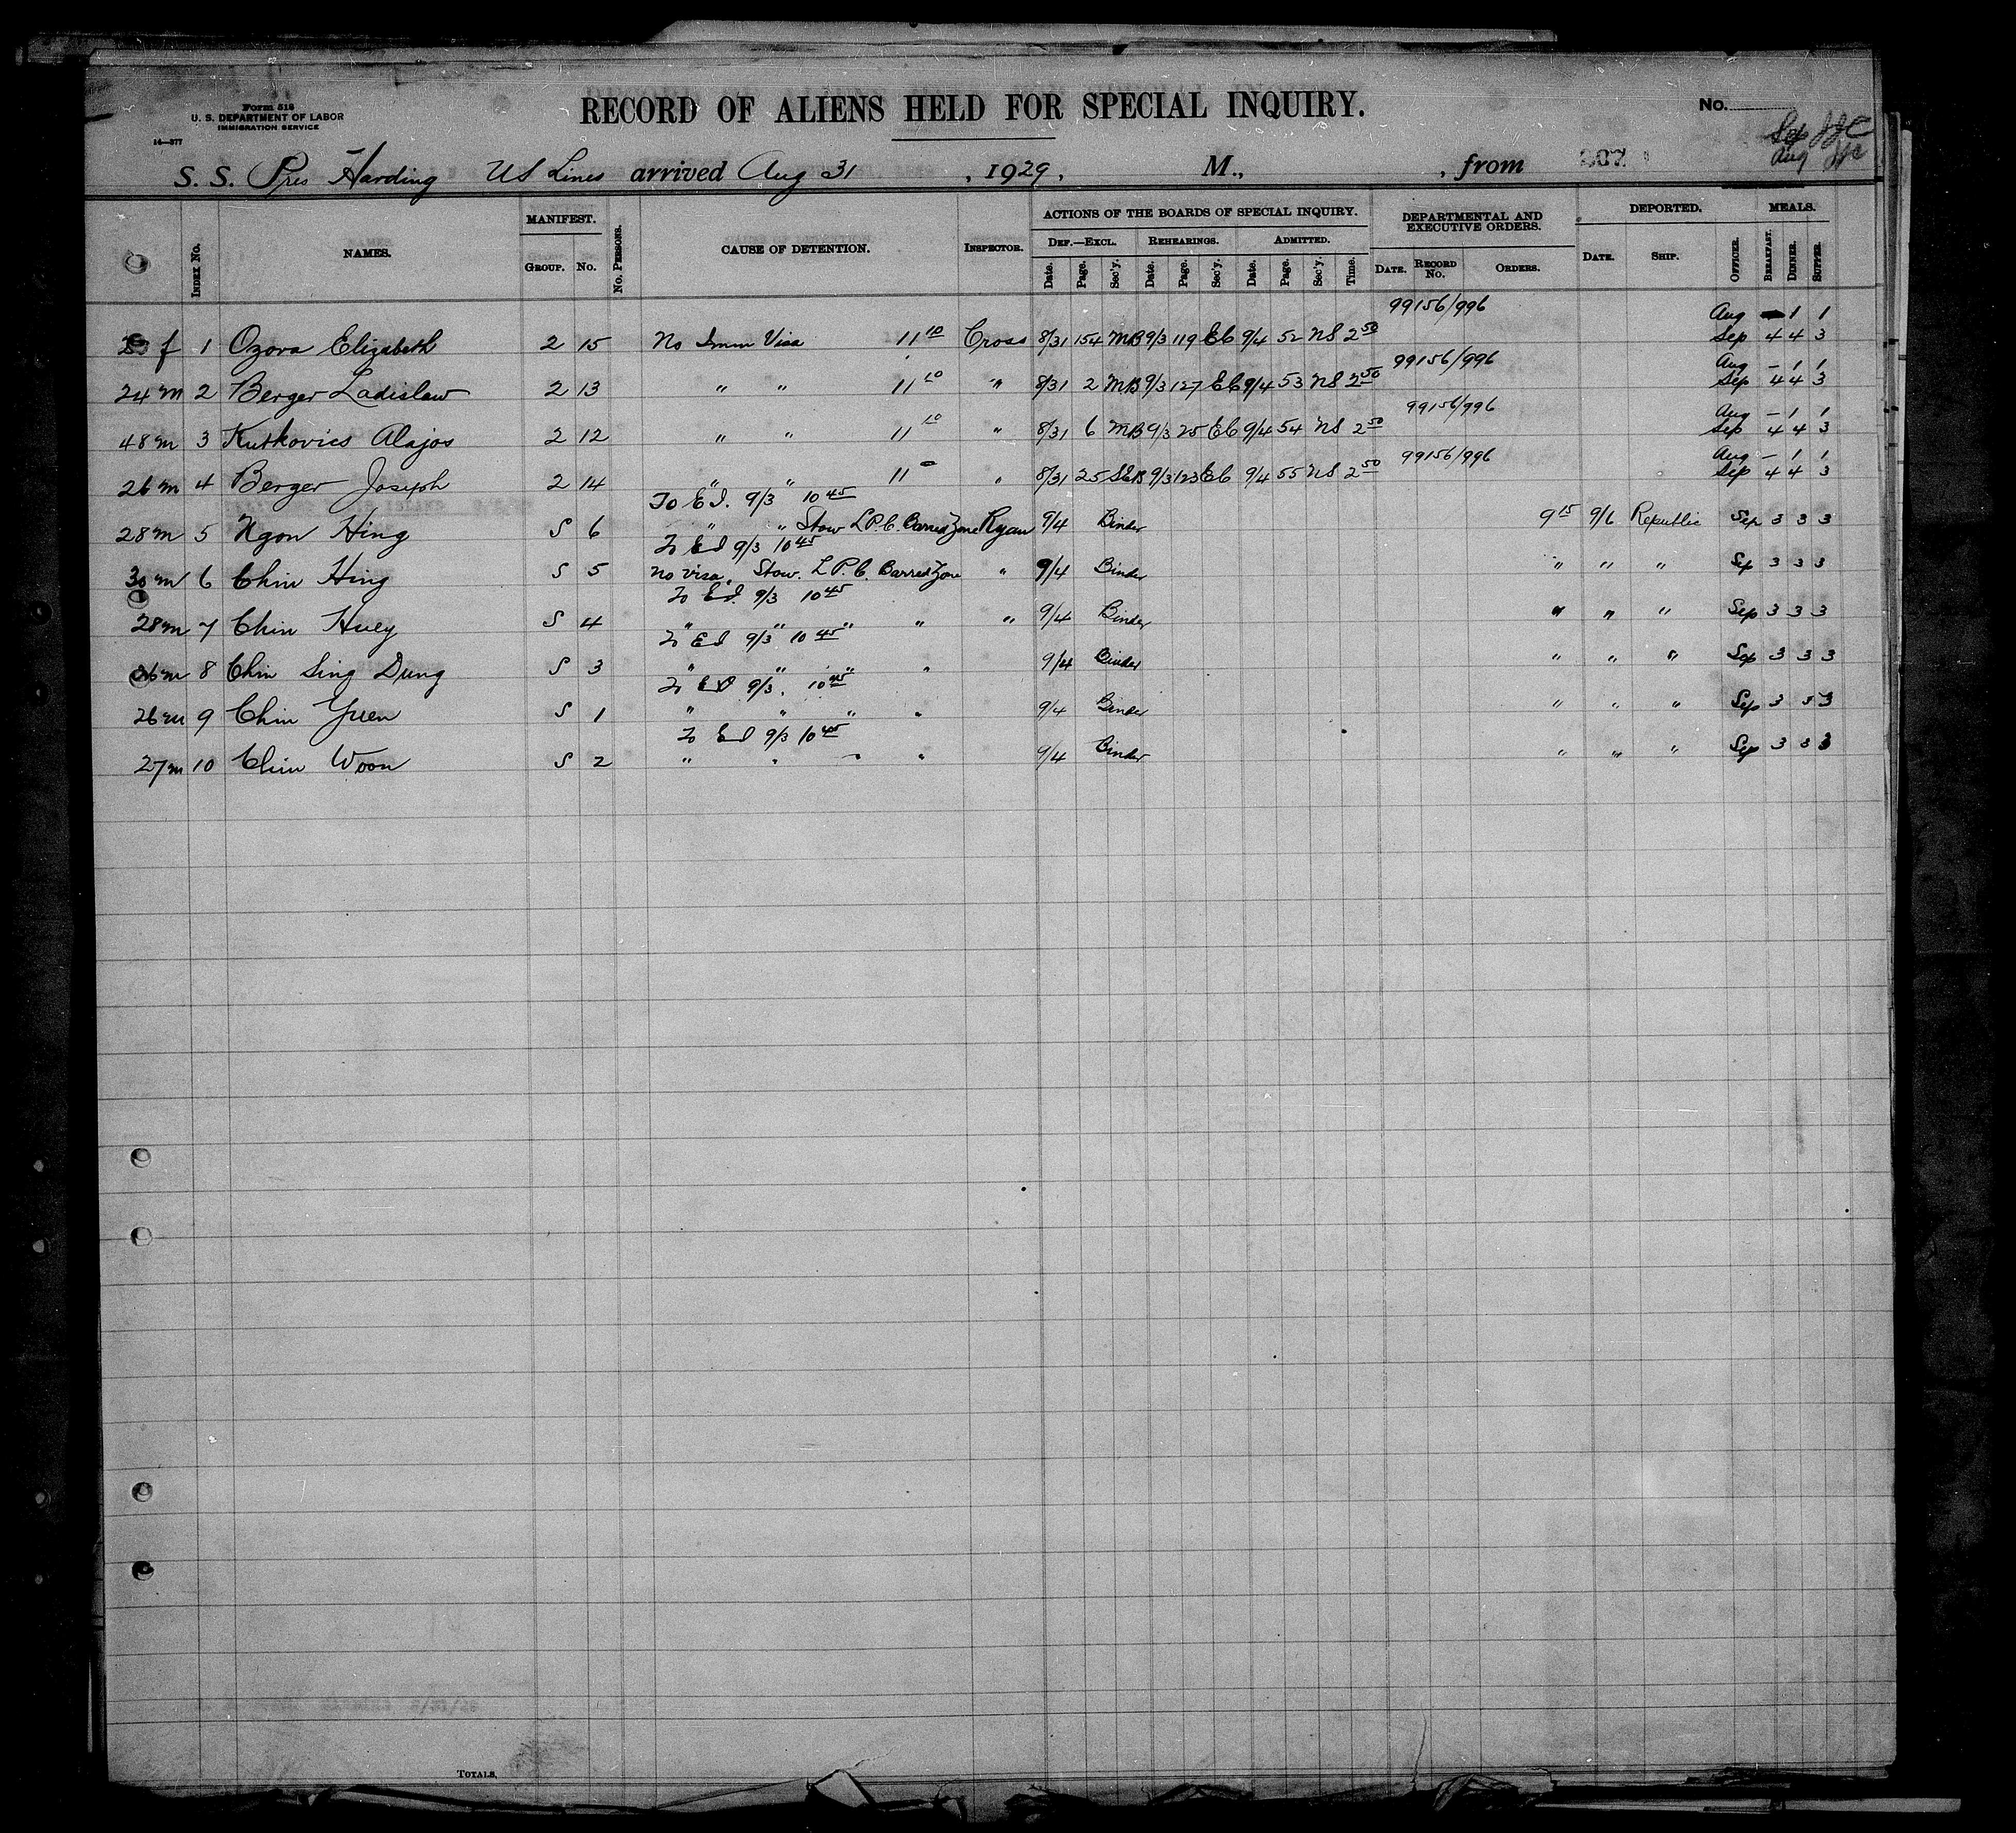 Form 518
U. S. DEPARTMENT OF LABOR
IMMIGRATION SERVICE
14—377
RECORD OF ALIENS HELD FOR SPECIAL INQUIRY.
No.
Sep JJC
Aug JJC
S. S. Pres Harding US Lines arrived Aug 31, 1929, M., , from 307
INDEX NO. NAMES. MANIFEST. GROUP. NO. NO. PERSONS. CAUSE OF DETENTION. INSPECTOR. ACTIONS OF THE BOARDS OF SPECIAL INQUIRY. DEPARTMENTAL AND EXECUTIVE ORDERS. DEPORTED. MEALS.
DEF.—EXCL. REHEARINGS. ADMITTED.
Date. Page. Sec'y. Date. Page. Sec'y. Date. Page. Sec'y. Time. DATE. RECORD NO. ORDERS. DATE. SHIP. OFFICER. BREAKFAST. DINNER. SUPPER.
99156/996 Aug – 1 1
f 1 Ozora Elizabeth 2 15 No Imm Visa 11 10 Cross 8/31 154 MB 9/3 119 EC 9/4 52 NS 2 50 Sep 4 4 3
99156/996 Aug – 1 1
24 m 2 Berger Ladislaw 2 13 " " 11 10 " 8/31 2 MB 9/3 127 EC 9/4 53 NS 2 50 Sep 4 4 3
99156/996 Aug – 1 1
48 m 3 Kutkovics Alajos 2 12 " " 11 10 " 8/31 6 MB 9/3 25 EC 9/4 54 NS 2 50 Sep 4 4 3
99156/996 Aug – 1 1
26 m 4 Berger Joseph 2 14 " " 11 " 8/31 25 9/3 123 EC 9/4 55 NS 2 50 Sep 4 4 3
To E.I. 9/3 10 45
28 m 5 Ngon Hing S 6 " " Stow L.P.C. Barred Zone Ryan 9/4 Binder 9 15 9/6 Republic Sep 3 3 3
To E I 9/3 10 45
30 m 6 Chin Hing S 5 No visa. Stow. L.P.C. Barred Zone " 9/4 Binder " " " Sep 3 3 3
To E I. 9/3 10 45
28 m 7 Chin Huey S 4 " " " " " 9/4 Binder " " " Sep 3 3 3
To E I 9/3 10 45
26 m 8 Chin Sing Dung S 3 " " " " 9/4 Binder " " " Sep 3 3 3
To E I 9/3. 10 45
26 m 9 Chin Yuen S 1 " " " " 9/4 Binder " " " Sep 3 3 3
To E I 9/3 10 45
27 m 10 Chin Woon S 2 " " " " 9/4 Binder " " " Sep 3 3 3
TOTALS,